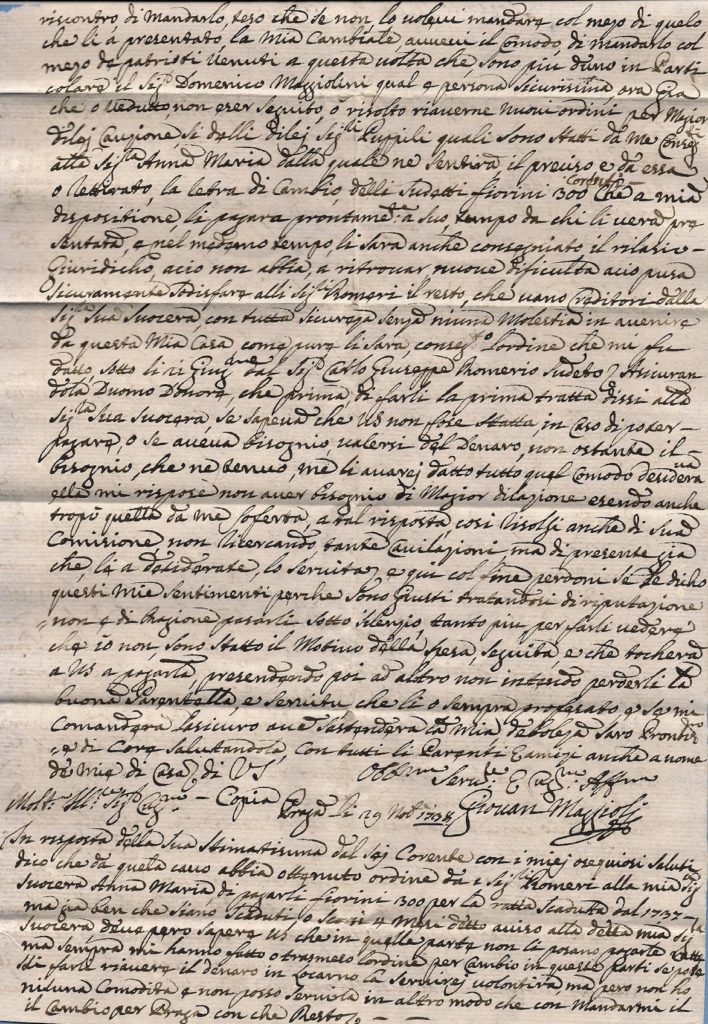 riscontro di Mandarlo, teso che se non, lo volevi mandare col mejo di quelo
che li à presentato, la Mia Cambiale, avvevi il Comodo, di mandarlo col
mejo de patrioti venuti a questa volta che, sono piu d'uno in Parti
colare il Sigr Domenico Maggiolini qual e persona Sicurissima ora gia
che o vedutto, non eser seguito, ò risolto riaverne nuovi ordini per Magior
di lej Cauzione, si delli di lej Sigli Puppili quali Sono Statti da me
alla Sigra Anna Maria dalla quale ne Sentira il preciso e da essa
o letterato, la letra di Cambio delli Sudetti fiorini 300 Che a mia
dispositione, li pagara prontamente a Suo, tempo da chi li vera pre
sentata, e nel medemo tempo, li sara anche consegniato il rilasio
Giuridicho, acio non abbia, a ritrovar, nuove dificulta acio pusa
Sicuramente Sodisfare alli Sigri Romeri il resto, che vano Creditori dalla
Sigra Sua Suocera, con tutta Sicureza Senza niuna Molestia in avenire
da questa Mia Casa come pure li Sara, l'ordine che mi fu
datto, sotto li 21 dal Sigr Carlo Giuseppe Romerio Sudeto Asicuran
dola Duomo D'onore, che prima, di farli la prima tratta dissi alla
Sigra Sua Suocera, se sapeva che VS non fose Statta in Caso di poter
pagare, o se aveva bisognio, valersi del Denaro, non ostante il
bisognio, che ne tenevo, me li avarej datto tutto quel Comodo desiderava
ella mi rispose non aver bisognio di Magior dilazione esendo anche
tropo quella da me soferta, a tal risposta cosi risolsi anche di Sua
Comisione, non ricercando, tante Cavilazioni ma di presente gia
che, lej a desiderate lo Servita, e qui col fine perdoni Se dicho
questi Mie Sentimenti perche Sono Giusti tratandosi di riputazione
non e di Ragione pasarli Sotto Silenzio, tanto piu per farli vedere
che io non Sono Statto il Motivo della spesa, seguita, e che tochera
a VS a pagarla, presendendo poi ad altro non intendo perderli la
buona Parentella, e Servitu, che li o Sempra profesato e Se mi
Comandera lasicuro Sastendera la Mia deboleza Saro
e di Core Salutandola, Con tutti li Parenti E amizi anche a nome
de mie di Casa, di VS
Giovan Maggioli
Copia Praga li 29 Nobre 1738
In risposta della Sua Stimatissima dal Sej Corente con i miej osequiosi Saluti
dico che da quela cavo abbia ottenuto ordine da i Sigli Romeri alla mia Sigra
Suocera Anna Maria di pagarli fiorini 300 per la ratta Scaduta dal 1737
ma gia ben che siano Scaduti o Scorsi 4 Mesi ditto aviso alla detta mia Sigra
Suocera deve pero Sapere VS che in quelle parte non la posano pagare
ma Sempra mi hanno fatto o trasmeso l'ordine per Cambio in queste parti Se
di farle riavere il denaro in Locarno la Servirej volontira ma pero non ho
niduna Comodita e non posso Servirla in altro modo che con Mandarmi il
il Cambio per Praga con che Resto